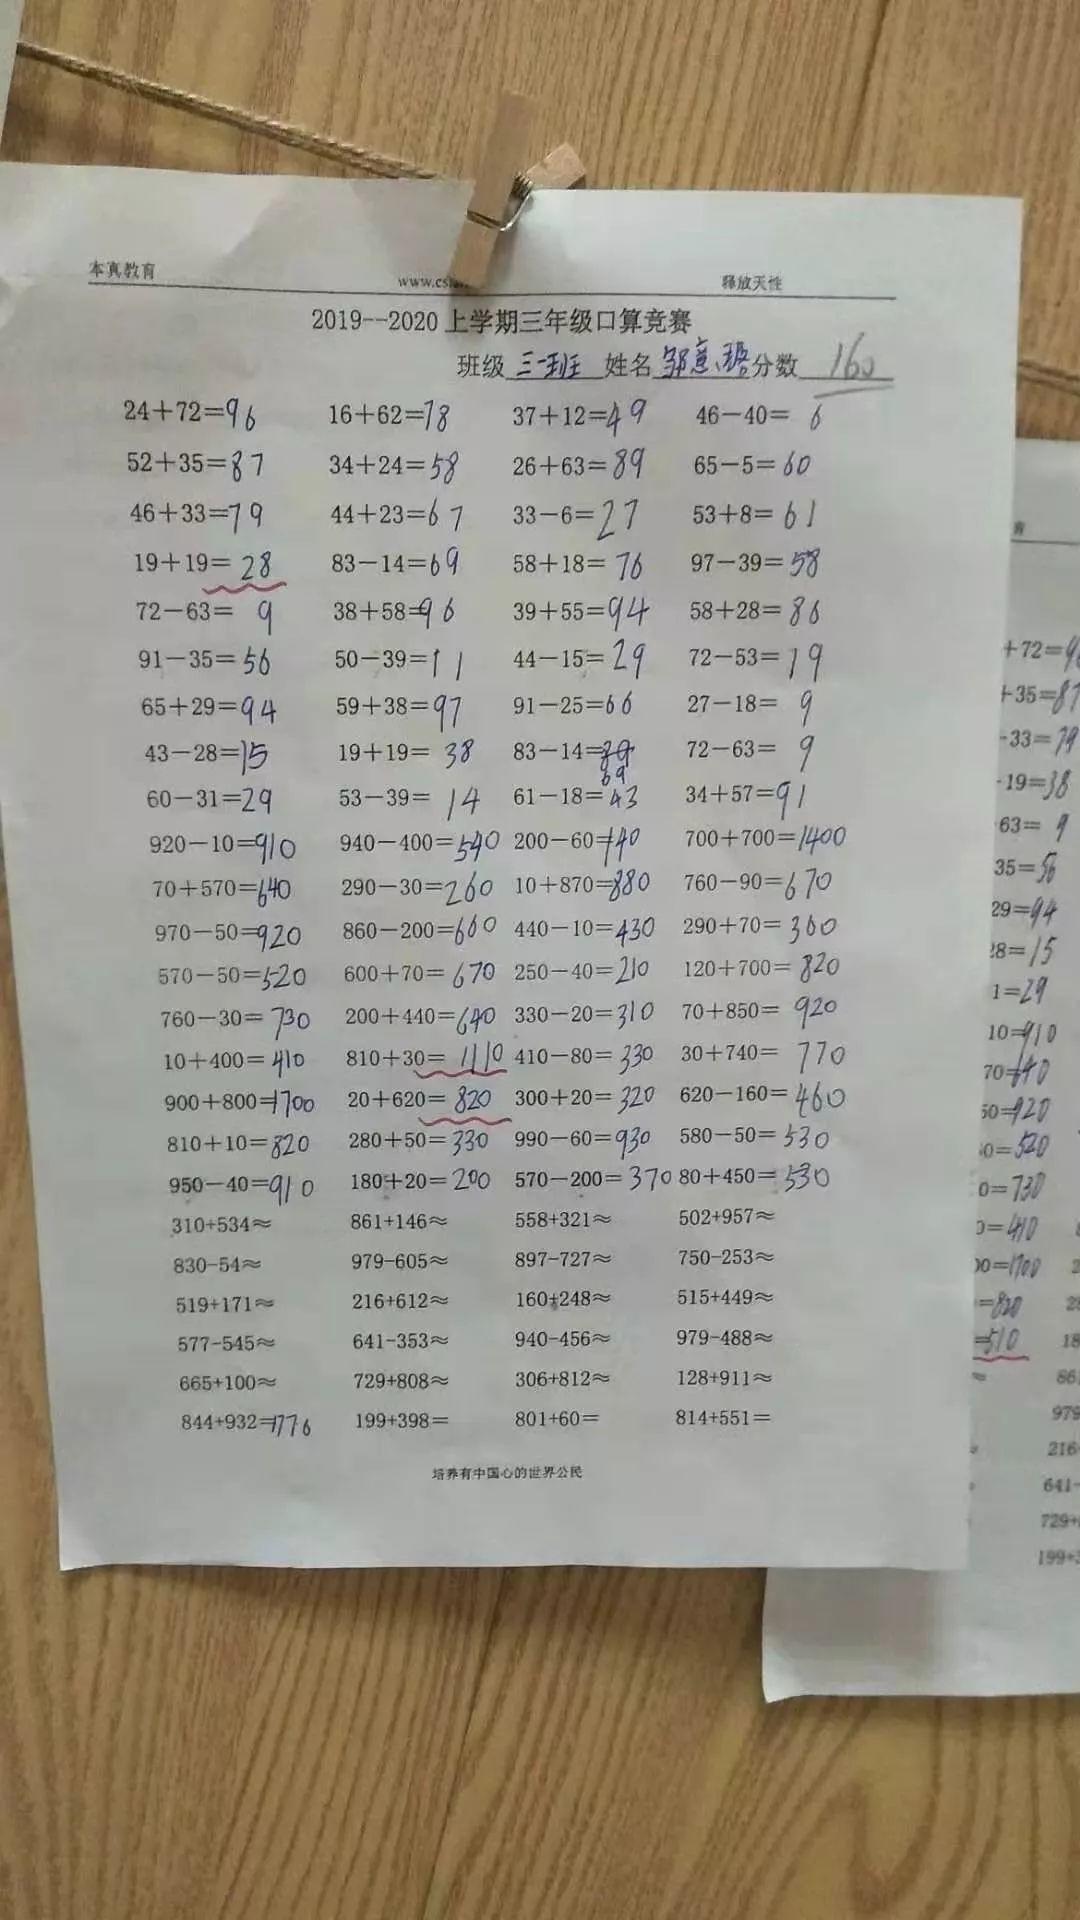 本真教育 释放天性
2019--2020上学期三年级口算竞赛
班级 三一班 姓名 分数 160
24+72=96 16+62=78 37+12=49 46-40= 6
52+35=87 34+24=58 26+63=89 65-5=60
46+33=79 44+23=67 33-6=27 53+8=61
19+19=28 83-14=69 58+18=76 97-39=58
72-63= 9 38+58=96 39+55=94 58+28=86
91-35=56 50-39=11 44-15=29 72-53=19
65+29=94 59+38=97 91-25=66 27-18= 9
43-28=15 19+19=38 83-14=69 72-63= 9
60-31=29 53-39=14 61-18=43 34+57=91
920-10=910 940-400=540 200-60=140 700+700=1400
70+570=640 290-30=260 10+870=880 760-90=670
970-50=920 860-200=660 440-10=430 290+70=360
570-50=520 600+70=670 250-40=210 120+700=820
760-30=730 200+440=640 330-20=310 70+850=920
10+400=410 810+30=1110 410-80=330 30+740=770
900+800=1700 20+620=820 300+20=320 620-160=460
810+10=820 280+50=330 990-60=930 580-50=530
950-40=910 180+20=200 570-200=370 80+450=530
310+534≈ 861+146≈ 558+321≈ 502+957≈
830-54≈ 979-605≈ 897-727≈ 750-253≈
519+171≈ 216+612≈ 160+248≈ 515+449≈
577-545≈ 641-353≈ 940-456≈ 979-488≈
665+100≈ 729+808≈ 306+812≈ 128+911≈
844+932=1776 199+398= 801+60= 814+551=
培养有中国心的世界公民
+72=
+35=87
-33=79
-19=38
63= 9
35=56
29=94
28=15
1=29
10=910
70=640
50=920
0=520
0=730
0=410
00=1700
=820
=510